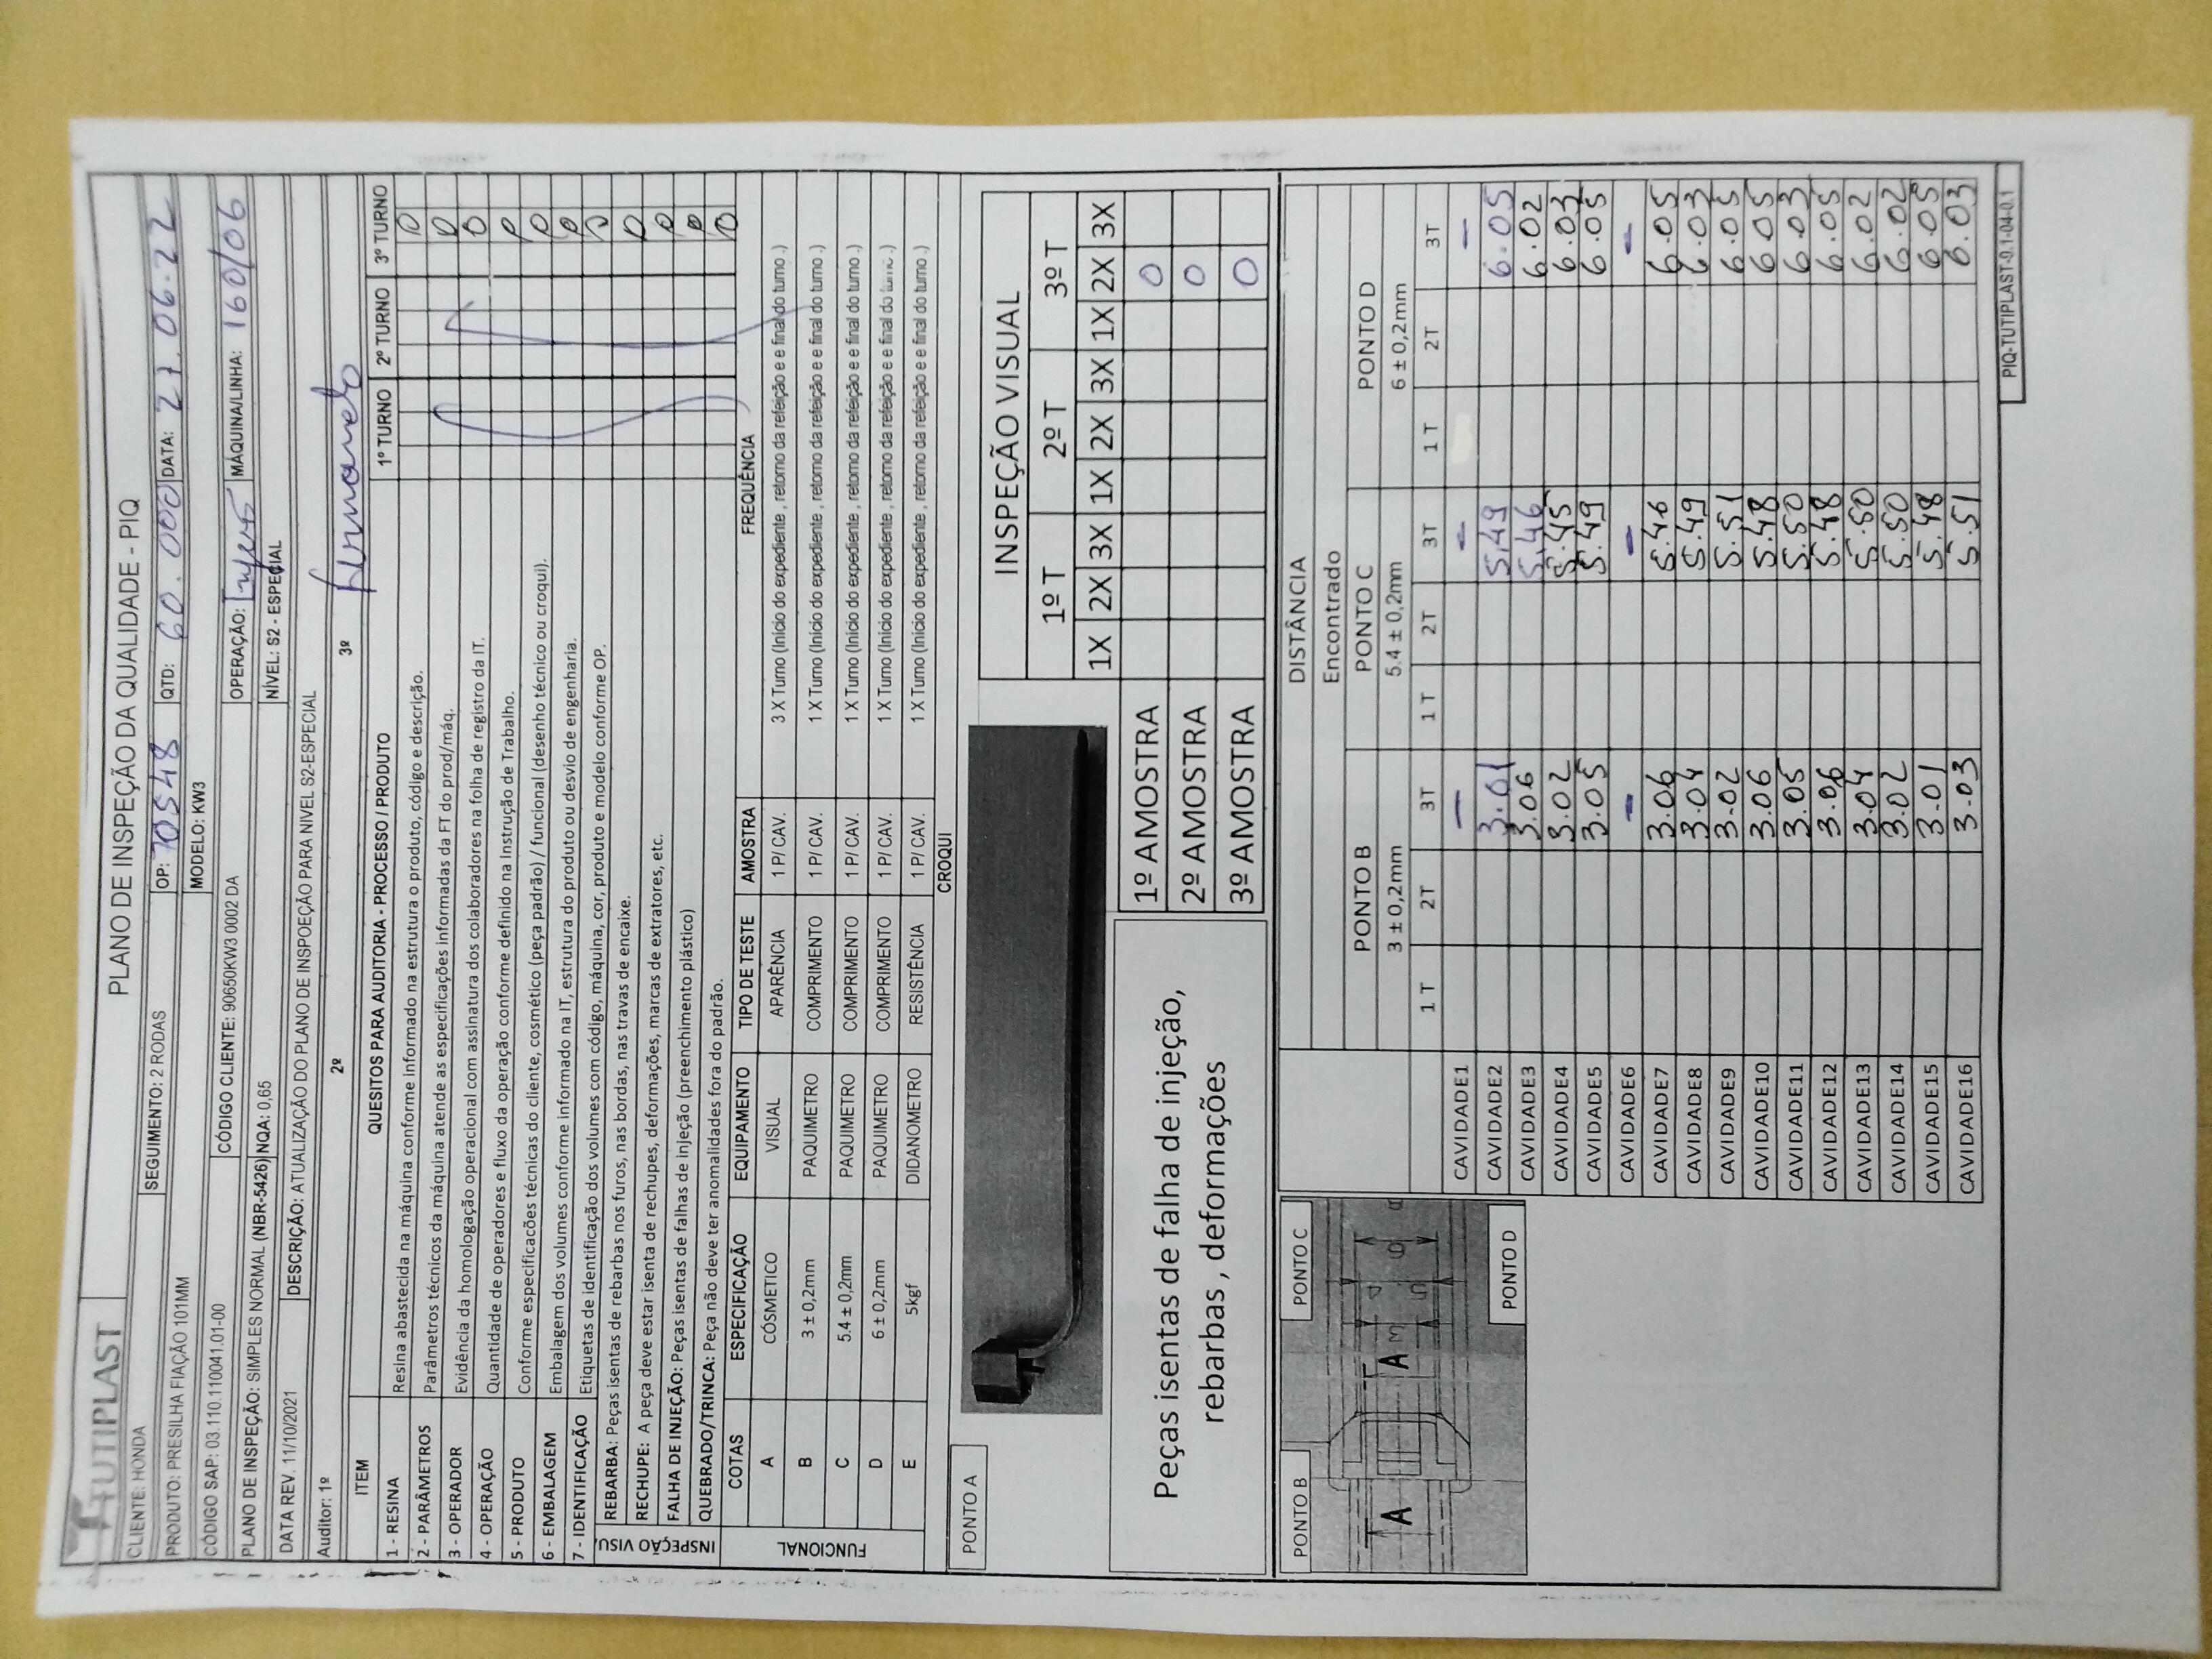 TUTIPLAST
PLANO DE INSPEÇÃO DA QUALIDADE - PIQ
CLIENTE: HONDA SEGUIMENTO: 2 RODAS OP: 70548 QTD: 60.000 DATA: 27.06.22
PRODUTO: PRESILHA FIAÇÃO 101MM MODELO: KW3
CÓDIGO SAP: 03.110.110041.01-00 CÓDIGO CLIENTE: 90650KW3 0002 DA OPERAÇÃO: MÁQUINA/LINHA: 160/06
PLANO DE INSPEÇÃO: SIMPLES NORMAL (NBR-5426) NQA: 0,65 NÍVEL: S2 - ESPECIAL
DATA REV. 11/10/2021 DESCRIÇÃO: ATUALIZAÇÃO DO PLANO DE INSPOEÇÃO PARA NIVEL S2-ESPECIAL
Auditor: 1º 2º 3º
ITEM QUESITOS PARA AUDITORIA - PROCESSO / PRODUTO 1º TURNO 2º TURNO 3º TURNO
1 - RESINA Resina abastecida na máquina conforme informado na estrutura o produto, código e descrição.
2 - PARÂMETROS Parâmetros técnicos da máquina atende as especificações informadas da FT do prod/máq.
3 - OPERADOR Evidência da homologação operacional com assinatura dos colaboradores na folha de registro da IT.
4 - OPERAÇÃO Quantidade de operadores e fluxo da operação conforme definido na Instrução de Trabalho.
5 - PRODUTO Conforme especificacões técnicas do cliente, cosmético (peça padrão) / funcional (desenho técnico ou croqui).
6 - EMBALAGEM Embalagem dos volumes conforme informado na IT, estrutura do produto ou desvio de engenharia.
7 - IDENTIFICAÇÃO Etiquetas de identificação dos volumes com código, máquina, cor, produto e modelo conforme OP.
INSPEÇÃO VISU
REBARBA: Peças isentas de rebarbas nos furos, nas bordas, nas travas de encaixe.
RECHUPE: A peça deve estar isenta de rechupes, deformações, marcas de extratores, etc.
FALHA DE INJEÇÃO: Peças isentas de falhas de injeção (preenchimento plástico)
QUEBRADO/TRINCA: Peça não deve ter anomalidades fora do padrão.
FUNCIONAL
COTAS ESPECIFICAÇÃO EQUIPAMENTO TIPO DE TESTE AMOSTRA FREQUÊNCIA
A CÓSMETICO VISUAL APARÊNCIA 1 P/ CAV. 3 X Turno (Início do expediente , retorno da refeição e e final do turno .)
B 3 ± 0,2mm PAQUIMETRO COMPRIMENTO 1 P/ CAV. 1 X Turno (Início do expediente , retorno da refeição e e final do turno .)
C 5.4 ± 0,2mm PAQUIMETRO COMPRIMENTO 1 P/ CAV. 1 X Turno (Início do expediente , retorno da refeição e e final do turno .)
D 6 ± 0,2mm PAQUIMETRO COMPRIMENTO 1 P/ CAV. 1 X Turno (Início do expediente , retorno da refeição e e final do turno .)
E 5kgf DIDANOMETRO RESISTÊNCIA 1 P/ CAV. 1 X Turno (Início do expediente , retorno da refeição e e final do turno .)
CROQUI
PONTO A
INSPEÇÃO VISUAL
1º T 2º T 3º T
1X 2X 3X 1X 2X 3X 1X 2X 3X
1º AMOSTRA 0
2º AMOSTRA 0
3º AMOSTRA 0
Peças isentas de falha de injeção,
rebarbas , deformações
PONTO B PONTO C
A A 3 5 6
PONTO D
DISTÂNCIA
Encontrado
PONTO B PONTO C PONTO D
3 ± 0,2mm 5.4 ± 0,2mm 6 ± 0,2mm
1 T 2T 3T 1 T 2T 3T 1 T 2T 3T
CAVIDADE1 - - -
CAVIDADE2 3.01 5.49 6.05
CAVIDADE3 3.06 5.46 6.02
CAVIDADE4 3.02 5.45 6.03
CAVIDADE5 3.05 5.49 6.05
CAVIDADE6 - - -
CAVIDADE7 3.06 5.46 6.05
CAVIDADE8 3.04 5.49 6.03
CAVIDADE9 3.02 5.51 6.05
CAVIDADE10 3.06 5.48 6.05
CAVIDADE11 3.05 5.50 6.03
CAVIDADE12 3.06 5.48 6.05
CAVIDADE13 3.04 5.50 6.02
CAVIDADE14 3.02 5.50 6.02
CAVIDADE15 3.01 5.48 6.05
CAVIDADE16 3.03 5.51 6.03
PIQ-TUTIPLAST-0.1-04-0.1